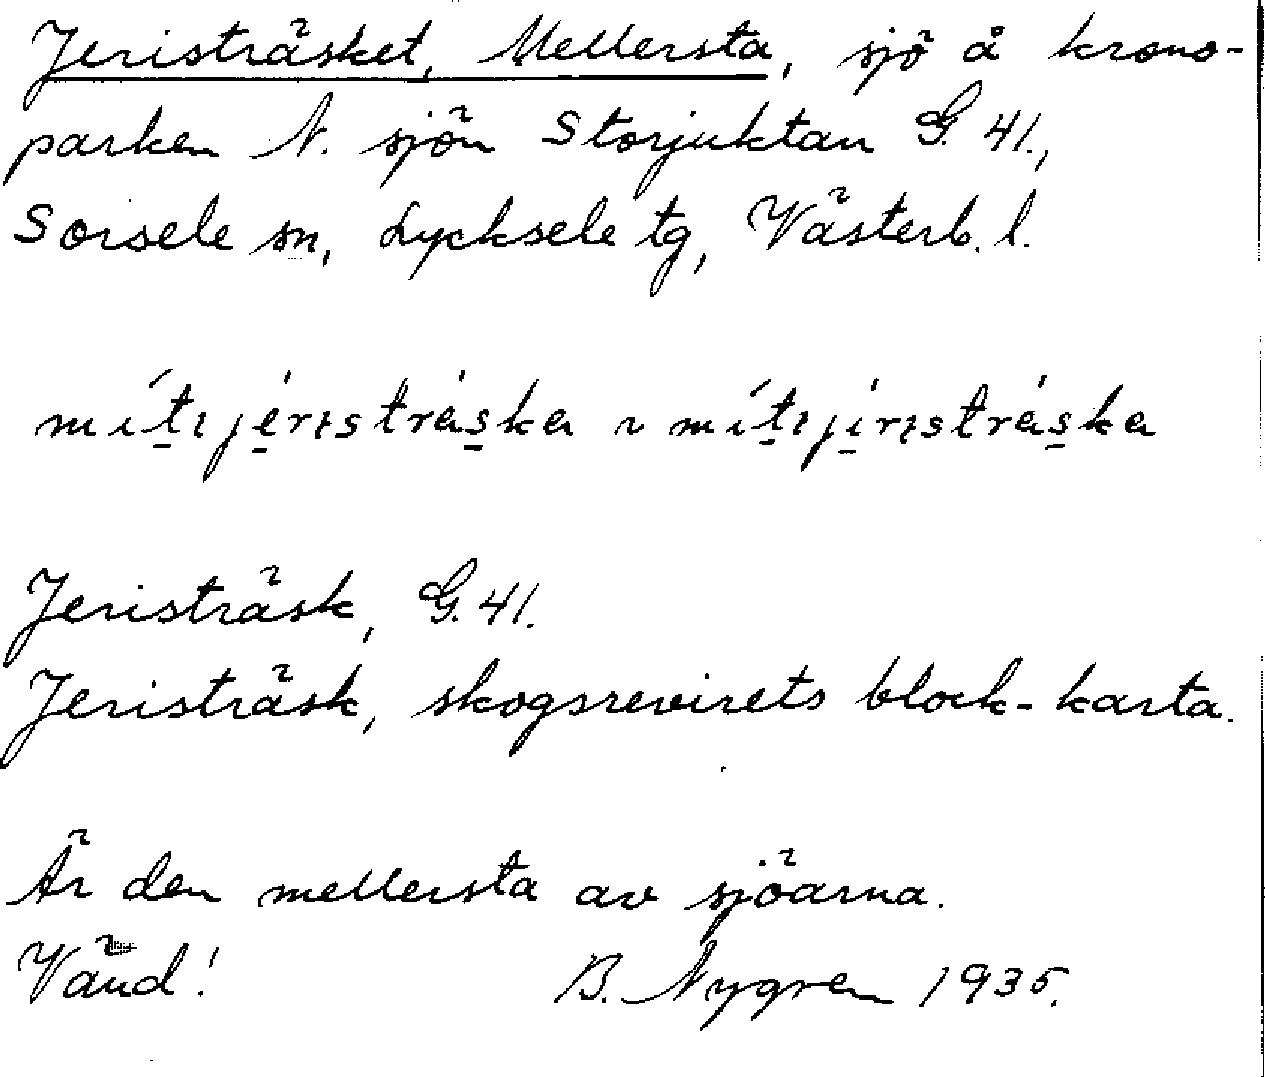 Jeristräsket, Mellersta, sjö å krono-
parken N. sjön Storjuktan G. 41.,
Sorsele sn, Lycksele tg, Västerb. l.
Jeristräsk, G. 41.
Jeristräsk, skogsrevirets block-karta.
Är den mellersta av sjöarna.
Vänd! B. Nygren 1935.